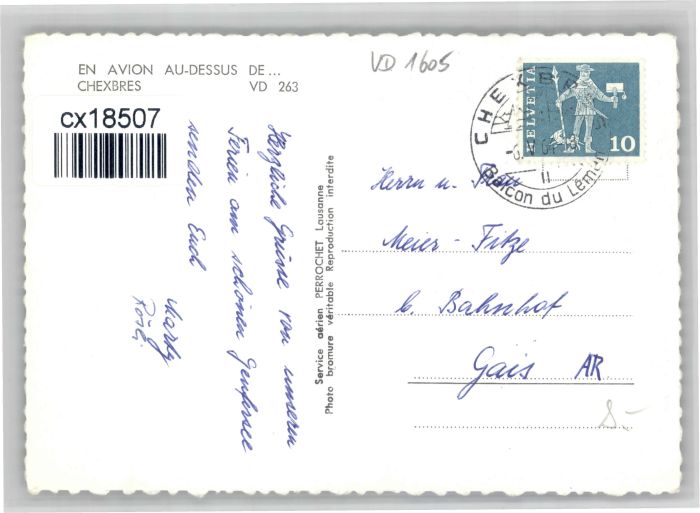 EN AVION AU-DESSUS DE...
CHEXBRES VD 263
cx18507
VD 1605
HELVETIA
10
CHEXBRES
II
Balcon du Léman
Herzliche Grüsse von unseren
Ferien am schönen Genfersee
senden Euch
Rösli
Service aérien PERROCHET Lausanne
Photo bromure véritable Reproduction interdite
Herrn u. Frau
Meier - Fitze
b. Bahnhof
Gais AR